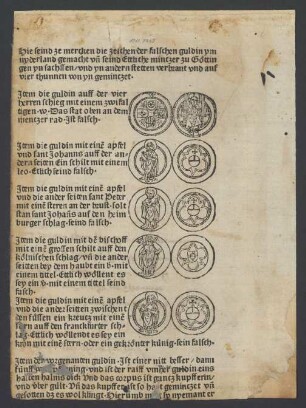 Hie seind ze mercken die zeichen der falschen guldin ym
nyderland gemacht vñ seind Ettliche mintzer zu Götin
gen yn sachssen vnd yn andern stetten verbrant vnd auf
vier thunnen von yn gemüntzet.
Item die guldin auff der vier
herren schleg mit einem zwifal
tigen w. Das stat oben an dem
mentzer rad Ist falsch
Item die guldin mit einē apfel
vnd sant Johanns auff der an
dern seiten Ein schilt mit einem
leo Etlich seind falsch
Item die guldin mit einē apfel
vnd die ander seiten sant Peter
mit einē sternen an der brust solt
stan sant Johañs auf den heim
burger schlag seind falsch
Item die guldin mit dē bischoff
mit einē grossen schilt auff den
kölnischen schlag vñ die ander
seitten bey dem haubt ein b mit
einem titel Ettlich wöllent es
sey ein b mit einem titel seind
falsch
Item die guldin mit einē apfel
vnd die ander seiten zwischent
den füssen ein kreutz mit einē
stern auff den franckfurter sch
lag Ettlich wöllend es sey ein
han mit einē stern oder ein gekrönter künig sein falsch
Item der vorgenanten guldin Ist einer nit besser dann
fünff
halben halms dick Vnd das corpus ist gantz kupfferin
vnd vber gült Vnd das kupffer ist so hert gemüntzet vñ
gesotten dz es wol klingt Hier vmb yn nyemant er